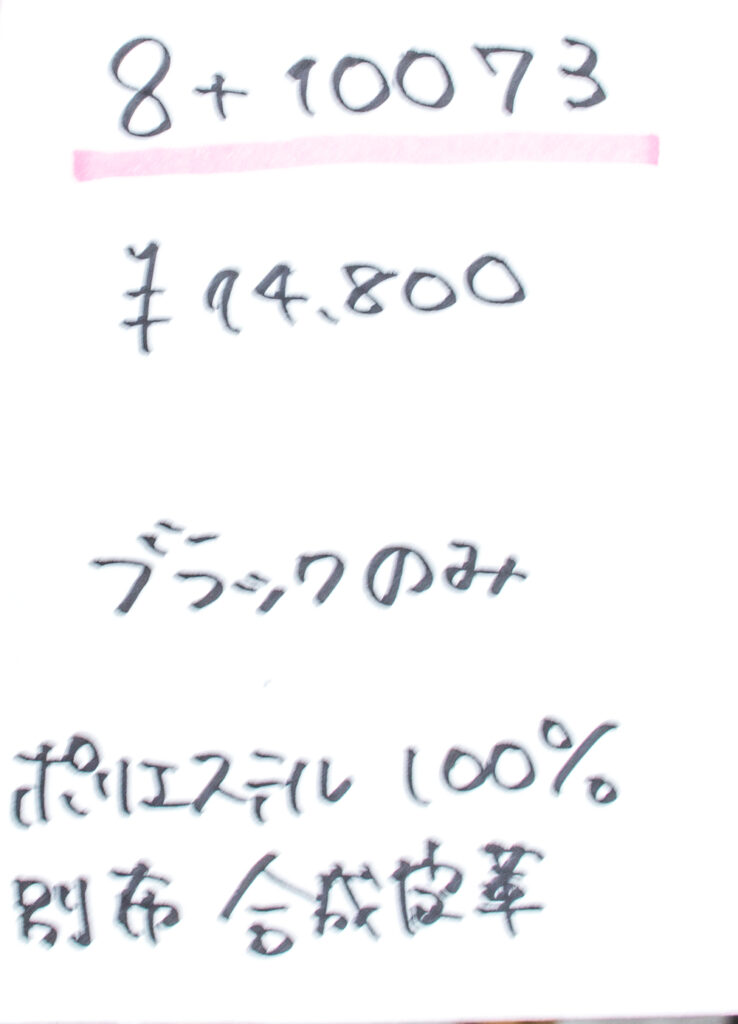 8+10073
¥14.800
ブラックのみ
ポリエステル 100%
別布 合成皮革